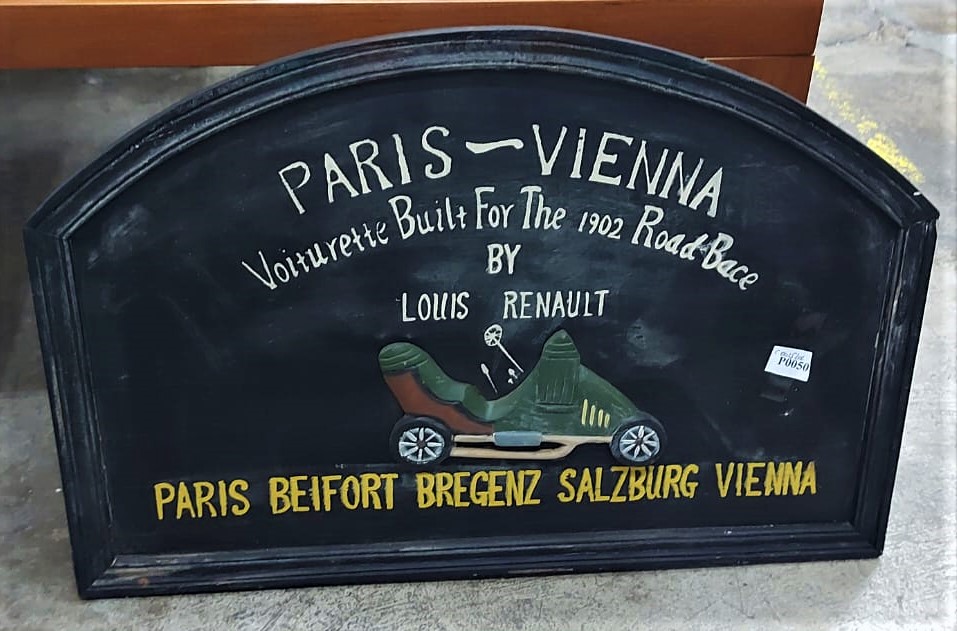 PARIS - VIENNA
Voiturette Built For The 1902 Road Bace
BY
LOUIS RENAULT
P0050
PARIS BEIFORT BREGENZ SALZBURG VIENNA